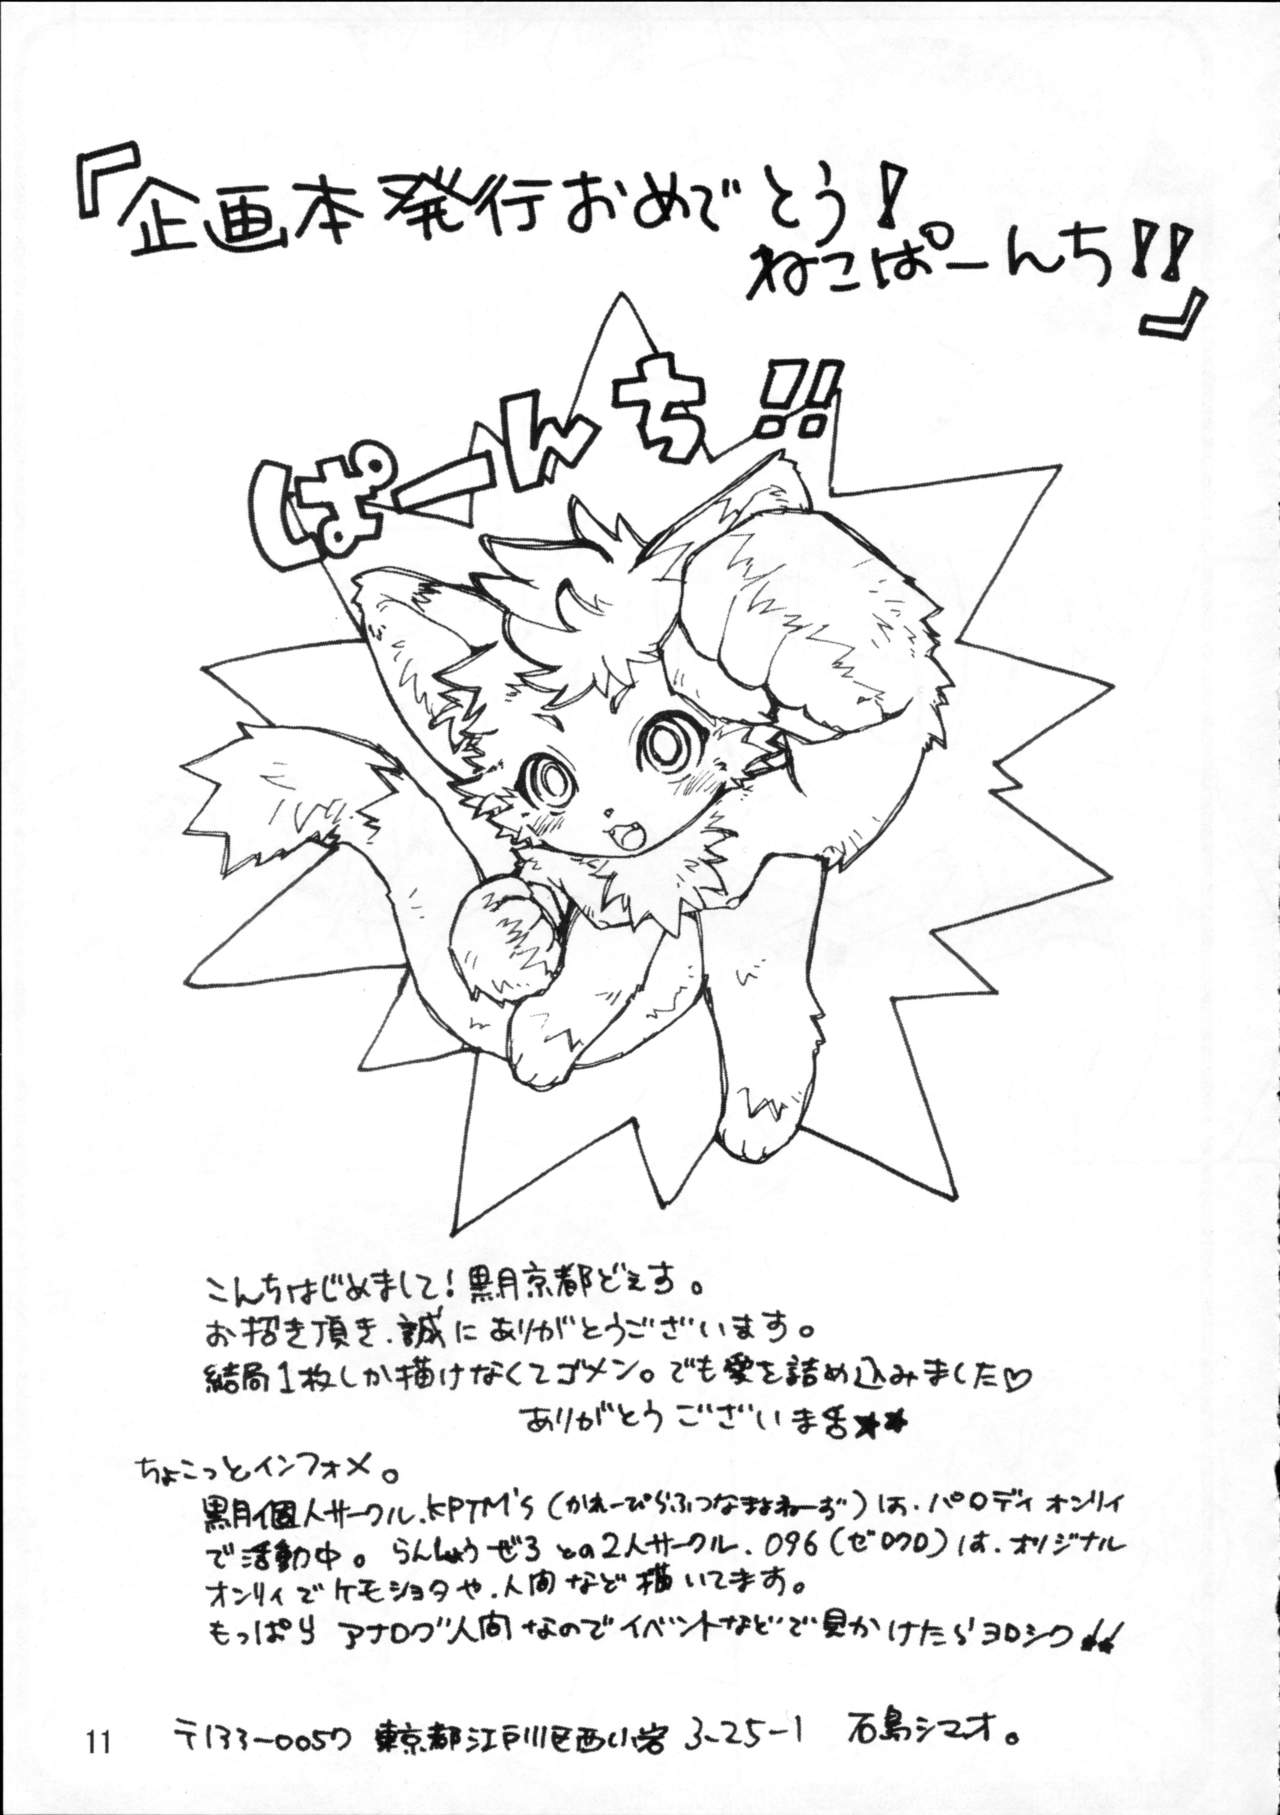 『企画本発行おめでとう！
ねこぱーんち!!』
ぱーんち!!
こんちはじめまして！黒月京都どぇす。
お招き頂き、誠にありがとうございます。
結局1枚しか描けなくてゴメン。でも愛を詰め込みました♡
ありがとうございま舌★★
ちょこっとインフォメ。
黒月個人サークル、KPTM's（かれーぴらふつなまよねーず）は、パロディオンリィ
で活動中。らんしょうぜろとの2人サークル、096（ゼロクロ）は、オリジナル
オンリィでケモショタや、人間など描いてます。
もっぱらアナログ人間なのでイベントなどで見かけたらヨロシク!!
〒133-0057 東京都江戸川区西小岩 3-25-1 石島シマオ。
11